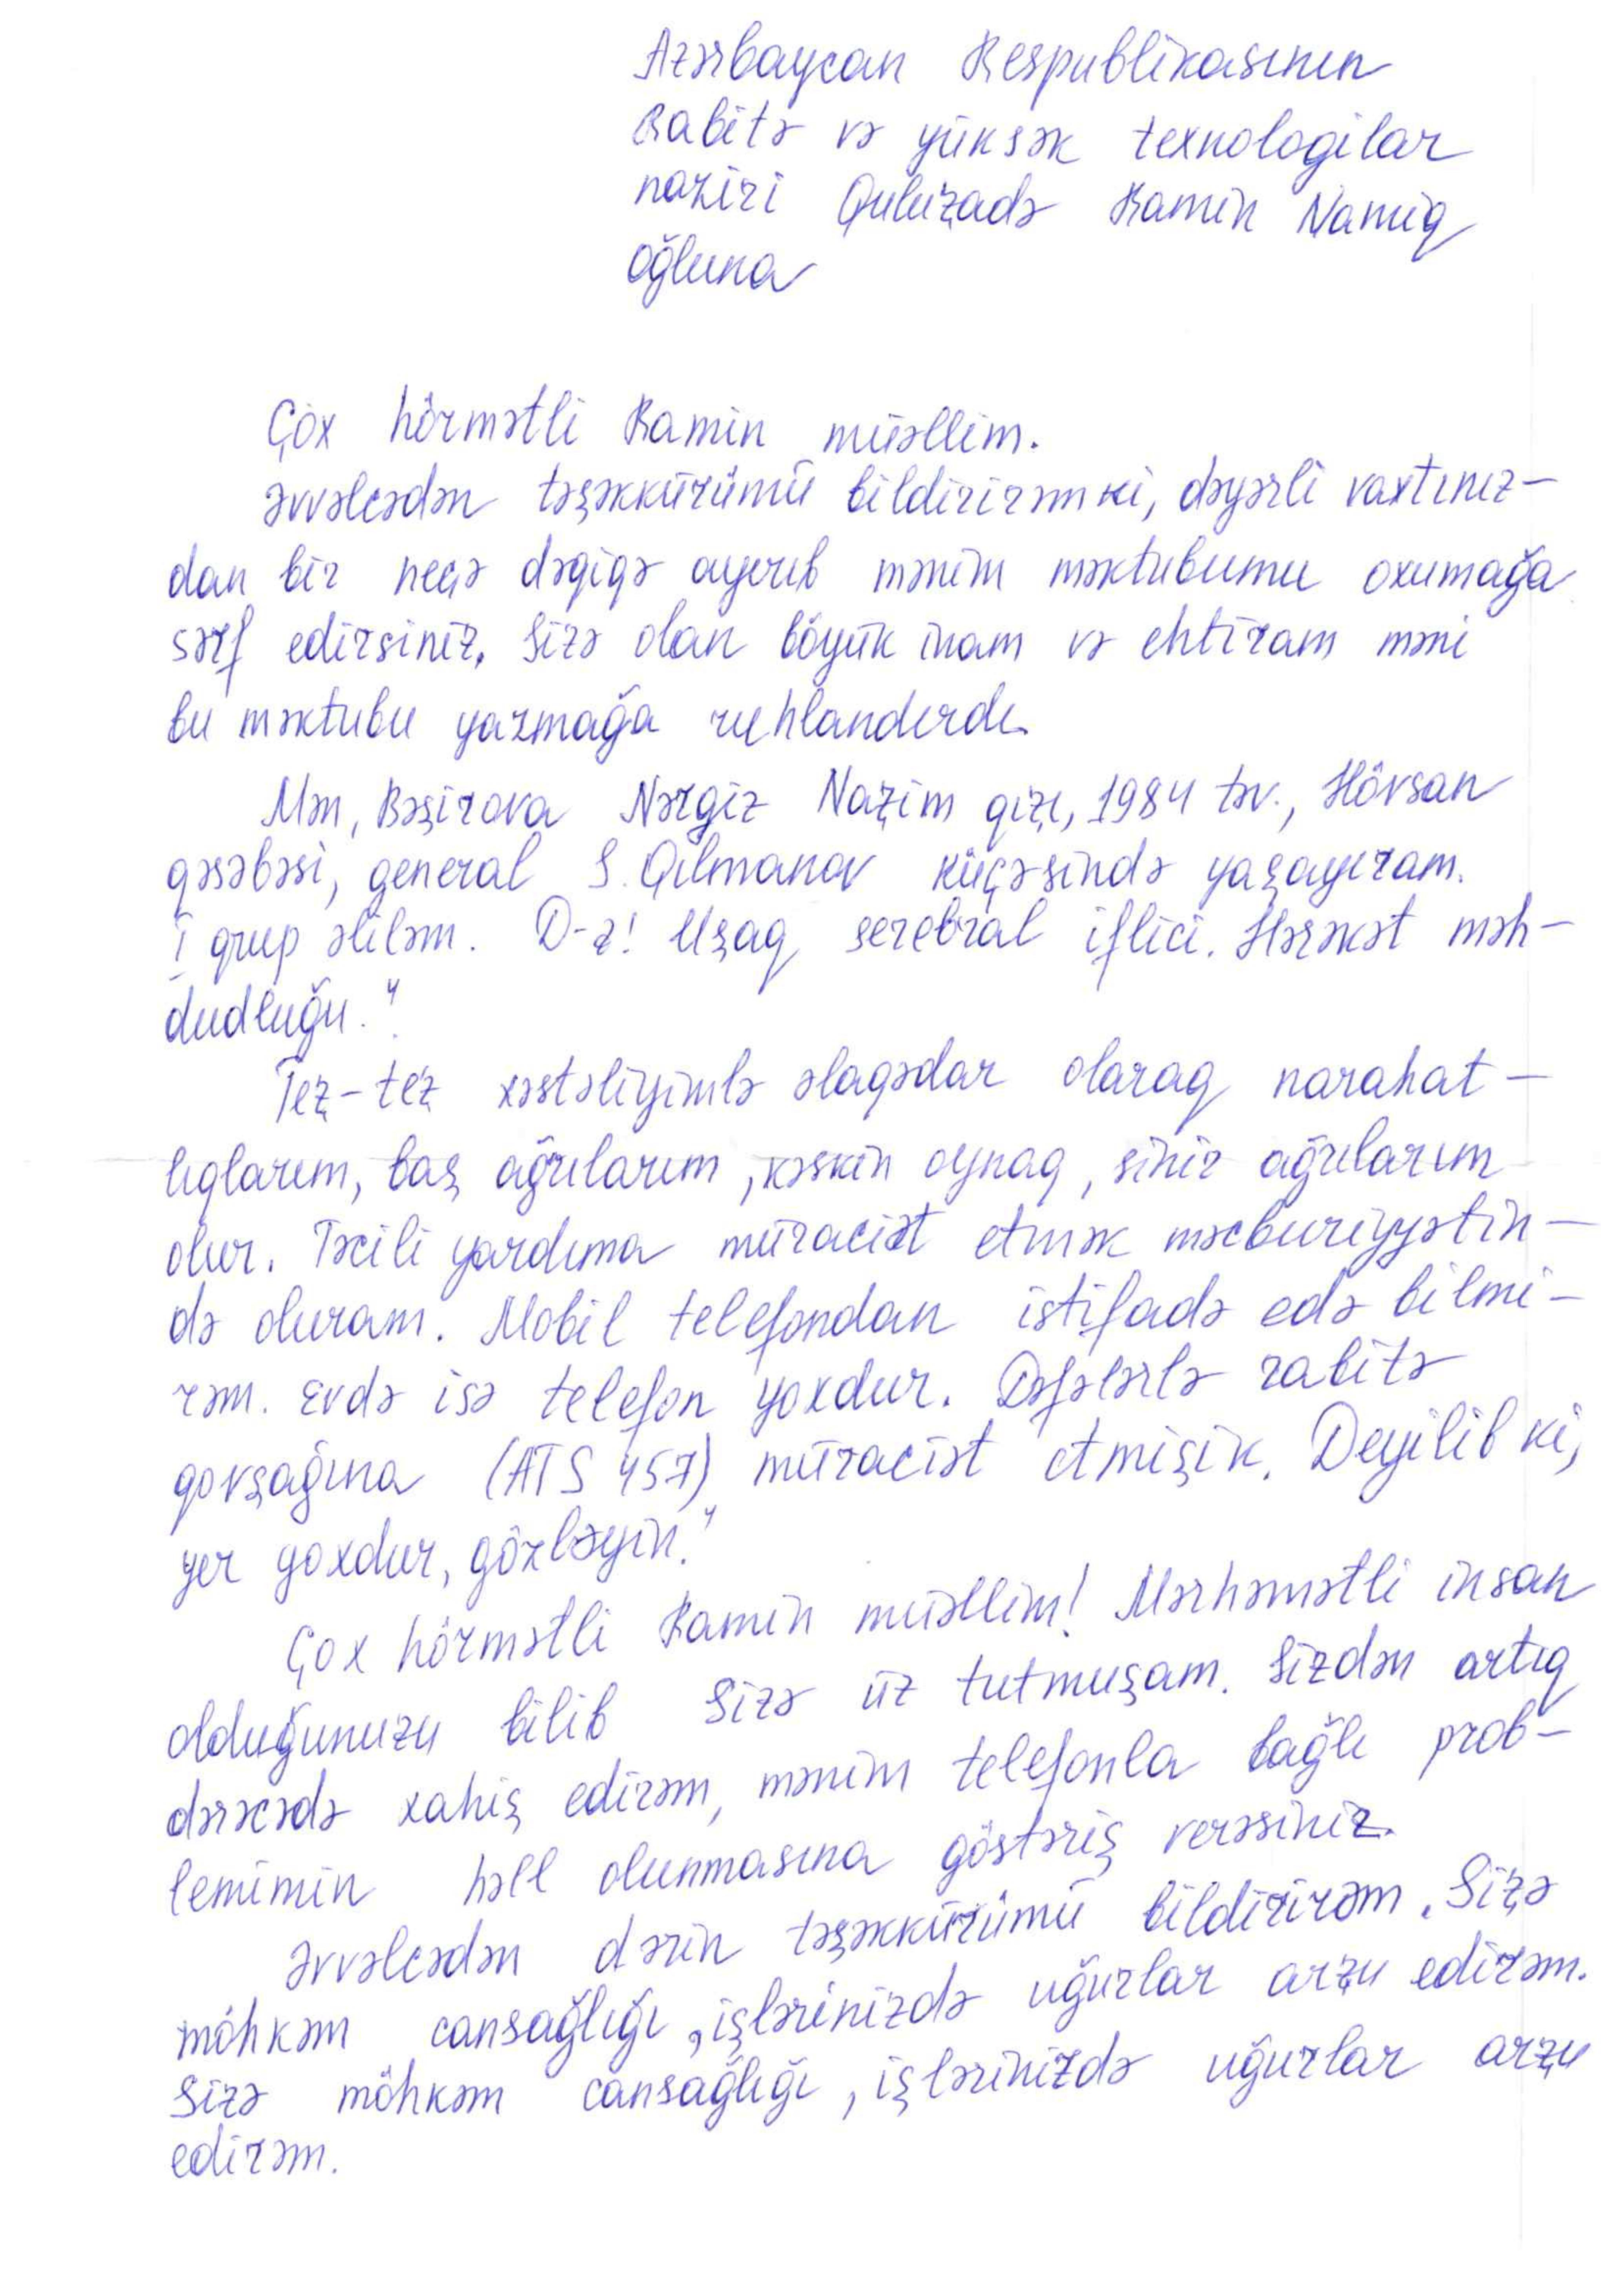 Azərbaycan Respublikasının
Rabitə və yüksək texnologilar
naziri Quluzadə Ramin Namiq
oğluna
Çox hörmətli Ramin müəllim.
Əvvəlcədən təşəkkürümü bildirirəm ki, dəyərli vaxtınız-
dan bir neçə dəqiqə ayırıb mənim məktubumu oxumağa
sərf edirsiniz. Sizə olan böyük inam və ehtiram məni
bu məktubu yazmağa ruhlandırdı.
Mən, Bəşirova Nərgiz Nazim qızı, 1984 təv., Hövsan
qəsəbəsi, general S. Qılmanov küçəsində yaşayıram.
I qrup əliləm. D-z! Uşaq serebral iflici. Hərəkət məh-
dudluğu."
Tez-tez xəstəliyimlə əlaqədar olaraq narahat-
lıqlarım, baş ağrılarım, kəskin oynaq, sinir ağrılarım
olur. Təcili yardıma müraciət etmək məcburiyyətin-
də oluram. Mobil telefondan istifadə edə bilmi-
rəm. Evdə isə telefon yoxdur. Dəfələrlə rabitə
qovşağına (ATS 457) müraciət etmişik. Deyilib ki,
yer yoxdur, gözləyin."
Çox hörmətli Ramin müəllim! Mərhəmətli insan
olduğunuzu bilib Sizə üz tutmuşam. Sizdən artıq
dərəcədə xahiş edirəm, mənim telefonla bağlı prob-
lemimin həll olunmasına göstəriş verəsiniz.
Əvvəlcədən dərin təşəkkürümü bildirirəm. Sizə
möhkəm cansağlığı, işlərinizdə uğurlar arzu edirəm.
Sizə möhkəm cansağlığı, işlərinizdə uğurlar arzu
edirəm.